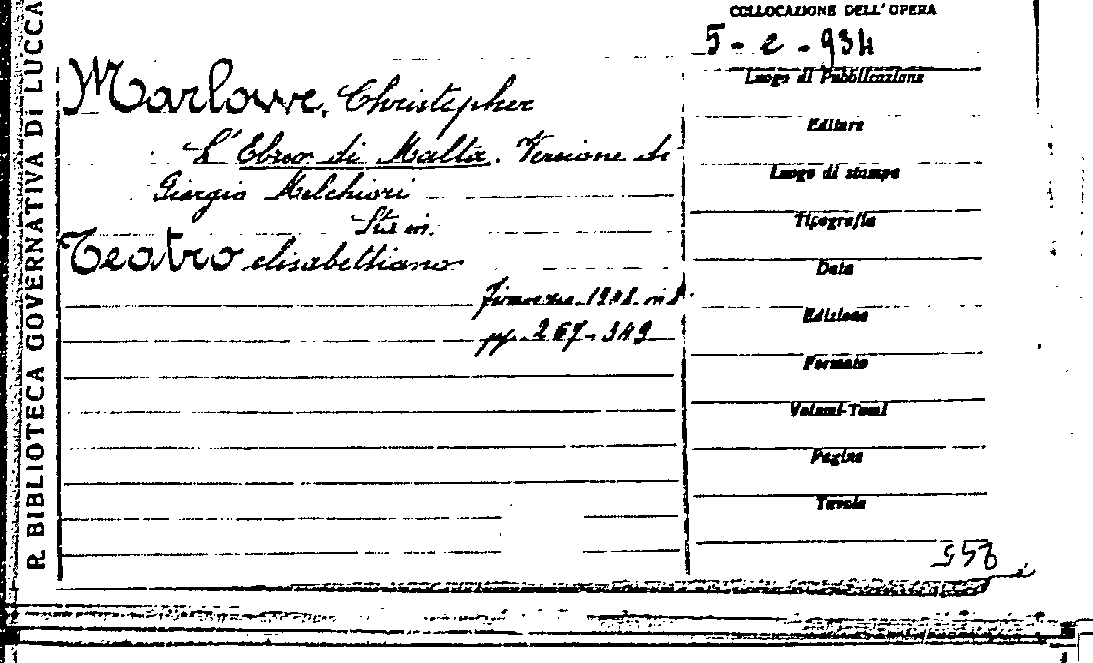 R. BIBLIOTECA GOVERNATIVA DI LUCCA
COLLOCAZIONE DELL' OPERA
5 - e - 934
Marlowe, Christopher
L'Ebreo di Malta. Versione di
Giorgio Melchiori
Sta in:
Teatro elisabettiano
Firenze in 8°
pp. 267-349
Luogo di Pubblicazione
Editore
Luogo di stampa
Tipografia
Data
Edizione
Formato
Volumi-Tomi
Pagine
Tavole